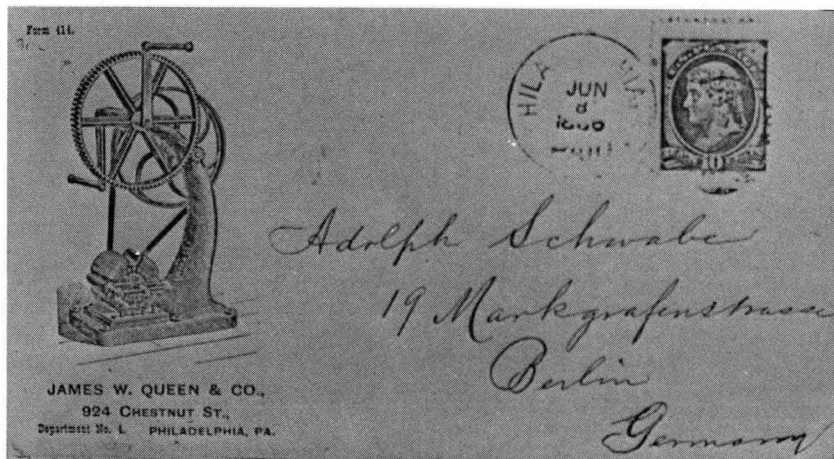 Form 414.
HILA
JUN
8
10
Adolph Schwabe
19 Markgrafenstrasse
Berlin
Germany
JAMES W. QUEEN & CO.,
924 CHESTNUT ST.,
Department No. 4. PHILADELPHIA, PA.